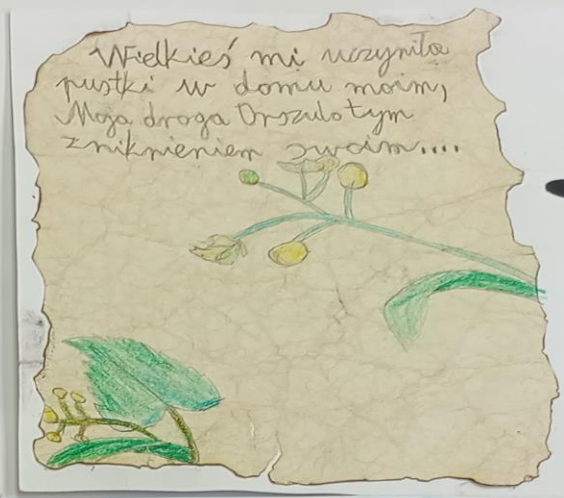 Wielkieś mi uczyniła
pustki w domu moim,
Moja droga Orszulo tym
zniknieniem swoim....